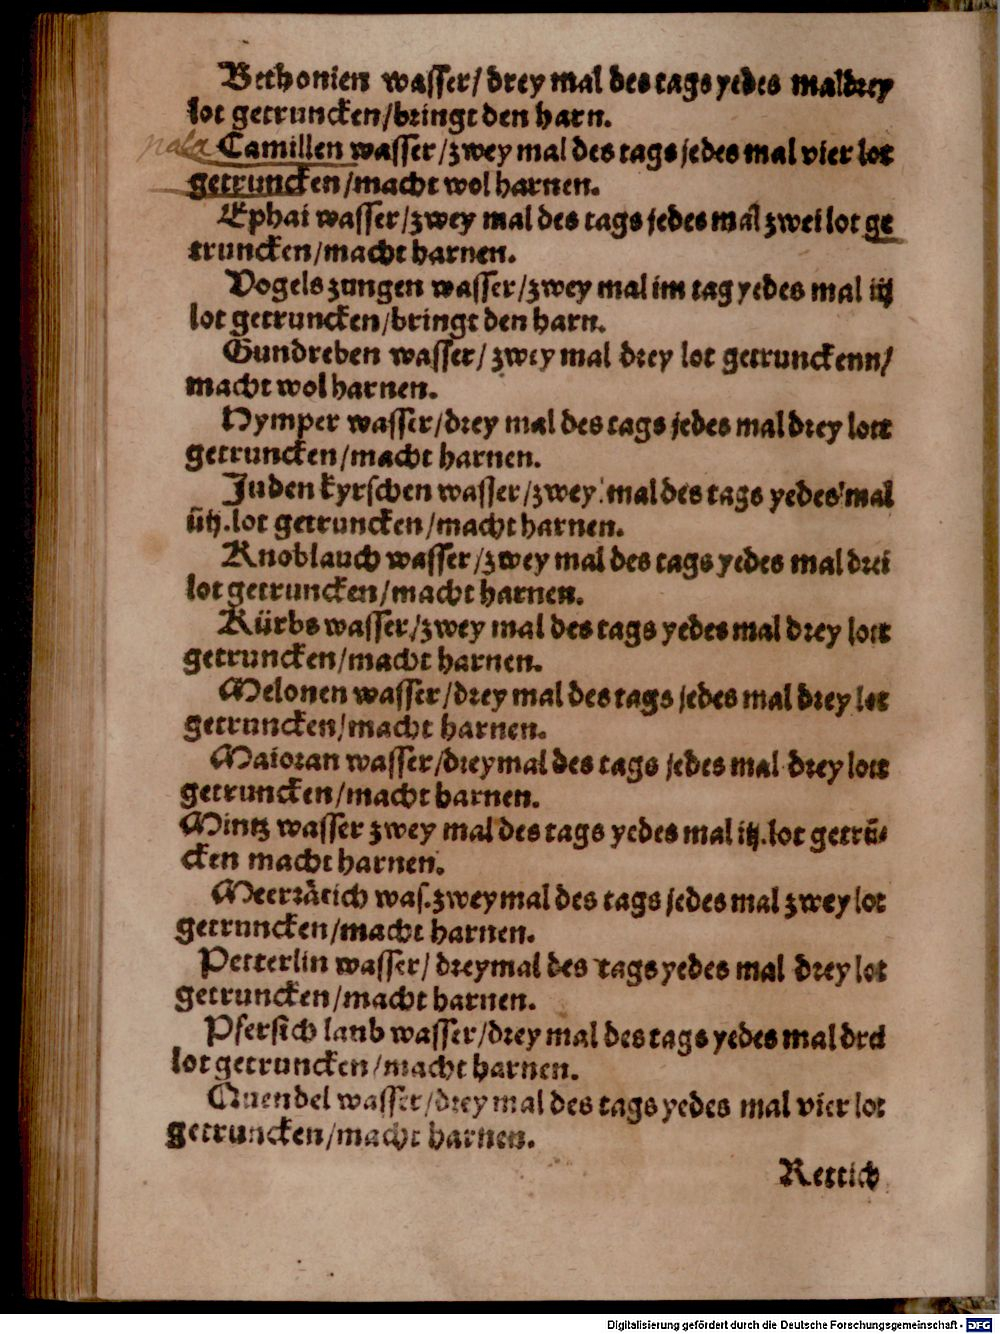 Bethonien wasser/drey mal des tags yedes mal drey
lot getruncken/bringt den harn.
Camillen wasser/zwey mal des tags jedes mal vier lot
getruncken/macht wol harnen.
Ephai wasser/zwey mal des tags jedes mal zwei lot ge
truncken/macht harnen.
Vogels zungen wasser/zwey mal im tag yedes mal iij
lot getruncken/bringt den harn.
Gundreben wasser/ zwey mal drey lot getrunckenn/
macht wol harnen.
Hymper wasser/drey mal des tags jedes mal drey lott
getruncken/macht harnen.
Juden kyrschen wasser/zwey mal des tags yedes mal
lot getruncken/macht harnen.
Knoblauch wasser/zwey mal des tags yedes mal drei
lot getruncken/macht harnen.
Kürbs wasser/zwey mal des tags yedes mal drey lott
getruncken/macht harnen.
Melonen wasser/drey mal des tags jedes mal drey lot
getruncken/macht harnen.
Maioran wasser/drey mal des tags jedes mal drey lott
getruncken/macht harnen.
Mintz wasser zwey mal des tags yedes mal lot getrū-
cken macht harnen.
Meerrätich was. zwey mal des tags jedes mal zwey lot
getruncken/macht harnen.
Petterlin wasser/ drey mal des tags yedes mal drey lot
getruncken/macht harnen.
Pfersich laub wasser/drey mal des tags yedes mal drei
lot getruncken/macht harnen.
Quendel wasser/drey mal des tags yedes mal vier lot
getruncken/macht harnen.
Rettich
Digitalisierung gefördert durch die Deutsche Forschungsgemeinschaft - DFG